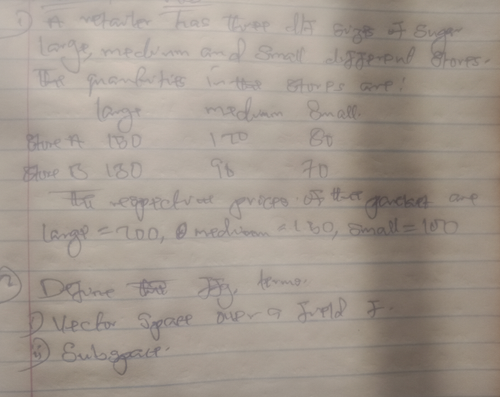 1) A retailer has three dif sizes of sugar
large, medium and small different stores.
The quantities in the stores are:
large medium Small.
Store A 130 120 80
Store B 180 90 70
The respective prices of the packet are
large = 200, medium = 150, small = 100
2 Define the ffg terms.
i) Vector Space over a field F.
ii) Subspace.